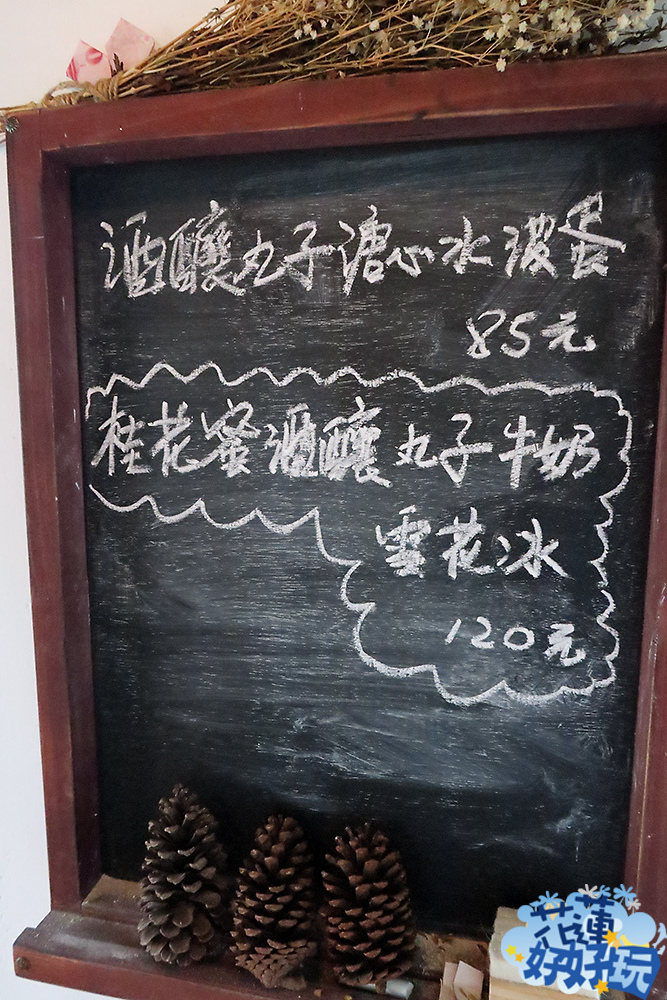 酒釀丸子溏心水波蛋
85元
桂花蜜酒釀丸子牛奶
雪花冰
120元
花蓮
好好玩